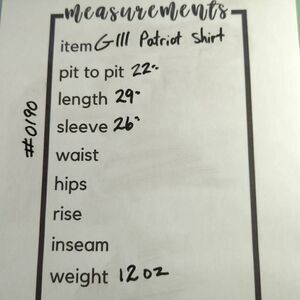 measurements
item GIII Patriot Shirt
pit to pit 22"
length 29"
sleeve 26"
waist
hips
rise
inseam
weight 12 oz
##0190